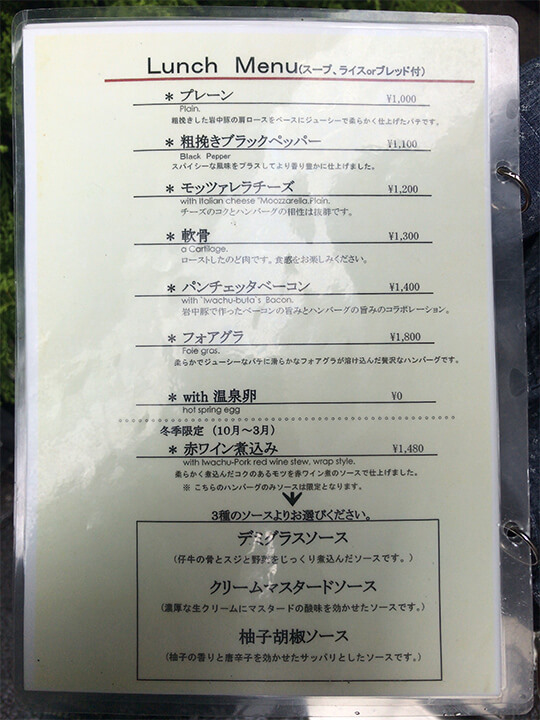 Lunch Menu(スープ、ライスorブレッド付)
* プレーン ¥1,000
Plain.
粗挽きした岩中豚の肩ロースをベースにジューシーで柔らかく仕上げたパテです。
* 粗挽きブラックペッパー ¥1,100
Black Pepper
スパイシーな風味をプラスしてより香り豊かに仕上げました。
* モッツァレラチーズ ¥1,200
with Italian cheese "Moozzarella.Plain.
チーズのコクとハンバーグの相性は抜群です。
* 軟骨 ¥1,300
a Cartilage.
ローストしたのど肉です。食感をお楽しみください。
* パンチェッタベーコン ¥1,400
with `Iwachu-buta`s Bacon.
岩中豚で作ったベーコンの旨みとハンバーグの旨みのコラボレーション。
* フォアグラ ¥1,800
Foie gras.
柔らかでジューシーなパテに滑らかなフォアグラが溶け込んだ贅沢なハンバーグです。
* with 温泉卵 ¥0
hot spring egg
冬季限定(10月～3月)
* 赤ワイン煮込み ¥1,480
with Iwachu-Pork red wine stew, wrap style.
柔らかく煮込んだコクのあるモツを赤ワイン煮のソースで仕上げました。
※ こちらのハンバーグのみソースは限定となります。
3種のソースよりお選びください。
デミグラスソース
(仔牛の骨とスジと野菜をじっくり煮込んだソースです。)
クリームマスタードソース
(濃厚な生クリームにマスタードの酸味を効かせたソースです。)
柚子胡椒ソース
(柚子の香りと唐辛子を効かせたサッパリとしたソースです。)